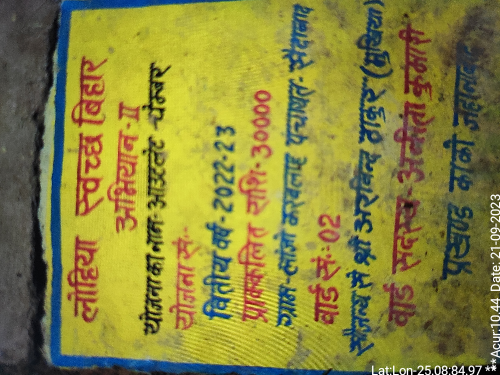 लोहिया स्वच्छ बिहार
अभियान-II
योजना का नाम- आउटलेट चेम्बर
योजना सं:-
वित्तीय वर्ष-2022-23
प्राक्कलित राशि-30000
ग्राम- पंचायत- सैदाबाद
वार्ड सं:-02
सौजन्य से श्री अरविन्द ठाकुर (मुखिया)
वार्ड सदस्य- अनीता कुमारी
प्रखण्ड काको जहानाबाद
Lat:Lon-25.08:84.97 **Acur:10.44 Date: 21-09-2023